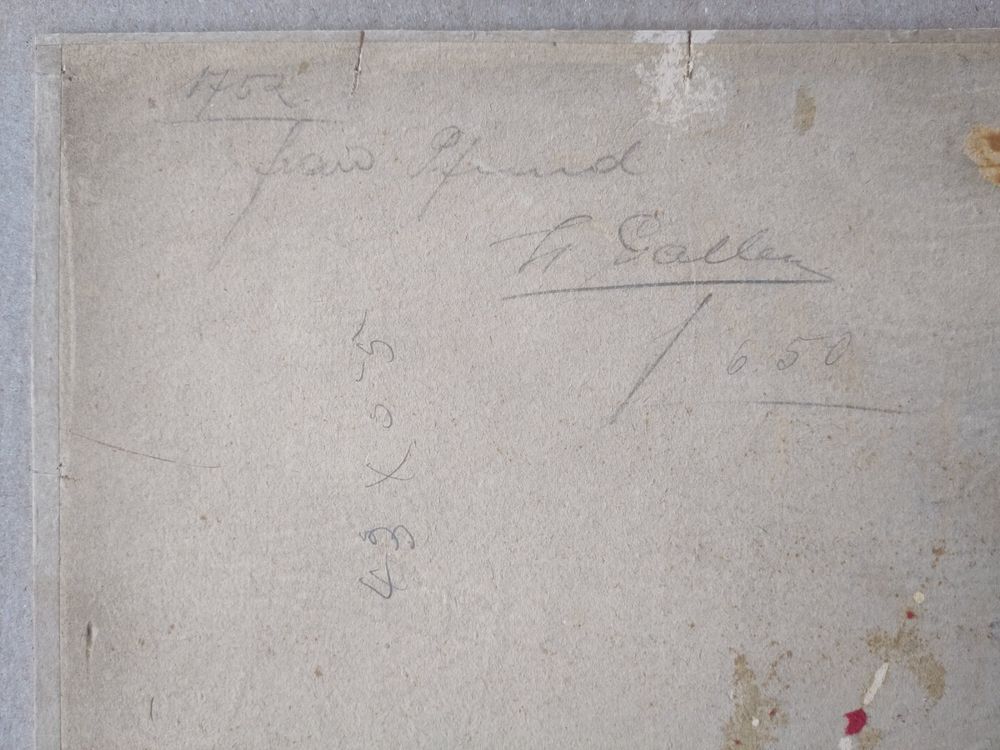 1752
Frau Pfund
St Gallen
6.50
43 x 35